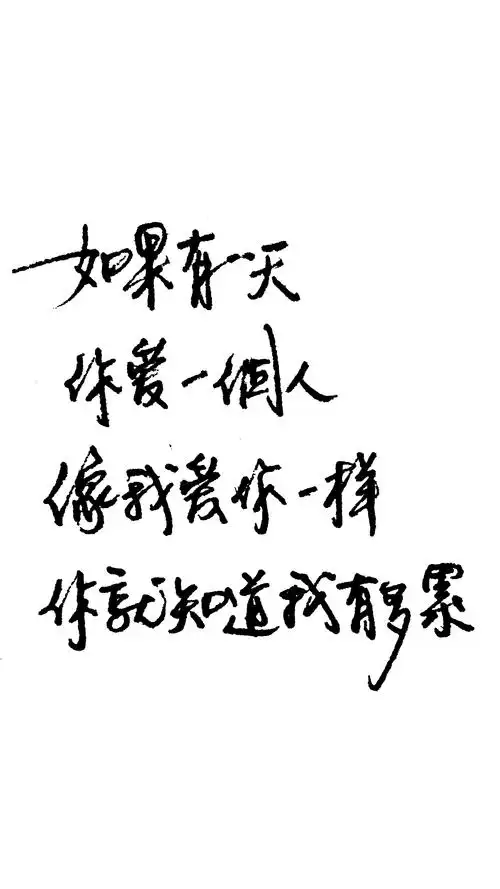 如果有一天
你爱一個人
像我爱你一样
你就知道我有多累